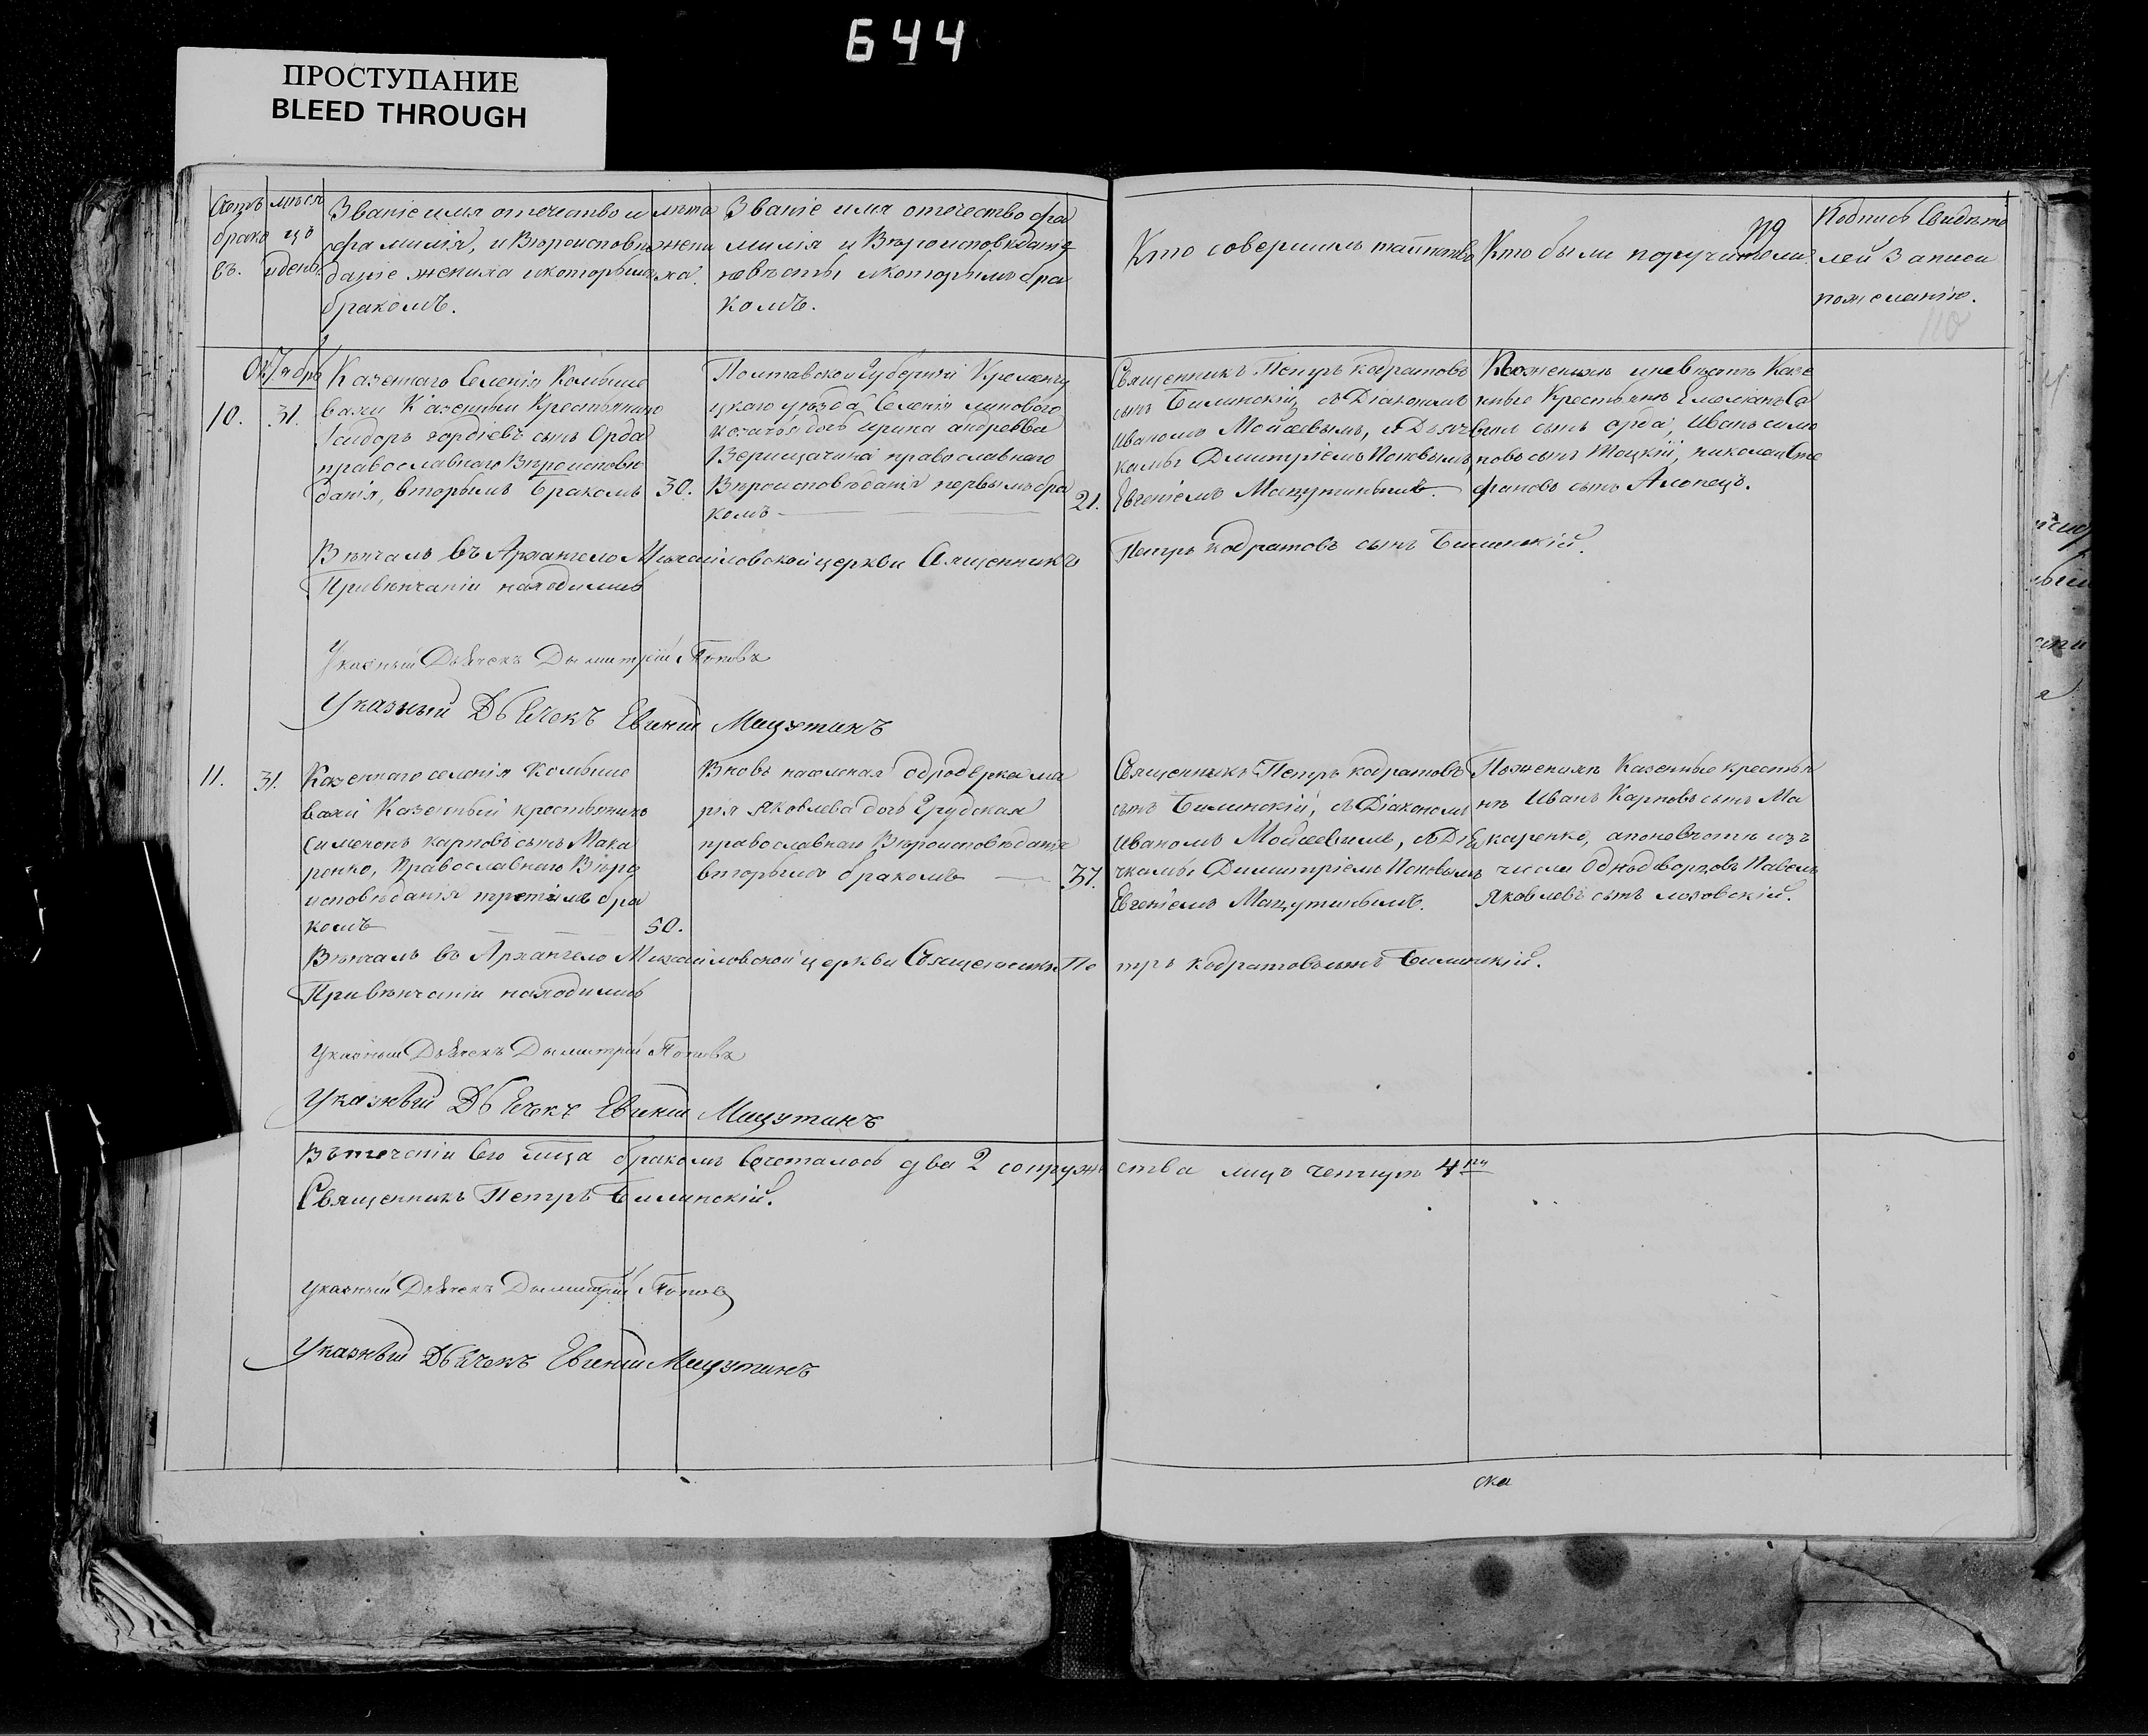 644
ПРОСТУПАНИЕ
BLEED THROUGH
Счетъ
брако
въ.
мѣся
цъ
идень.
Званіе имя отечество и
фамилія, и Вѣроисповѣ
даніе жениха икоторымъ
бракомъ.
лѣта
жени
ха.
Званіе имя отечество фа
милія и Вѣроисповѣданіе
невѣсты икоторымъ бра
комъ.
Кто совершилъ таинство
Кто были поручители
Подпись Свидѣте
лей Записи
пожеланію.
110
Октябрь
10.
31.
Казеннаго Селенія Комыше
вахи Казенный Крестьянинъ
Ісидоръ гордіевъ сынъ Орда
православнаго Вѣроисповѣ
данія, вторымъ бракомъ
30.
Полтавской Губерніи Кременчу
цкаго уѣзда Селенія
козачья дочь ирина андреева
православнаго
Вѣроисповѣданія первымъ бра
комъ
21.
Священникъ Петръ кодратовъ
сынъ Билинскій, съ Діакономъ
Иваномъ Мойсеевымъ, и Дьяч
камы Димитріемъ Поповымъ,
Евгеніемъ Мацутинымъ.
Пожених и невѣстѣ Казе
нные Крестьяне Емеліанъ Са
вел сынъ орда, Иванъ симо
новъ сынъ Тоцкій, николай Сте
фановъ сынъ Алопецъ.
Вѣнчалъ въ Архангело Михайловской церкви Священникъ
Петръ кодратовъ сынъ Билинскій.
Привѣнчаніи находились
Указный Дьячекъ Дымитрій Поповъ
Указный Дьячекъ Евгеній Мацутинъ
11.
31.
Казеннаго селенія Комыше
вахи Казенный крестьянинъ
Симеонъ карповъ сынъ Мака
ренко, Православнаго Вѣро
исповѣданія третімъ бра
комъ
50.
Вновь одродворка ма
рія Яковлева дочь Грудская
православнаго Вѣроисповѣданія
вторымъ бракомъ
37.
Священникъ Петръ кодратовъ
сынъ Билинскій, съ Діакономъ
Иваномъ Мойсеевымъ, и Дья
чкамы Димитріемъ Поповымъ
Евгеніемъ Мацутинымъ.
Поженихѣ Казенные крестья
нѣ Иванъ Карповъ сынъ Ма
каренко, апоневѣстѣ изъ
числа Однодворцовъ Павелъ
Яковлевъ сынъ лозовскій.
Вѣнчалъ въ Архангело Михайловской церкви Священникъ Пе
тръ кодратовъ сынъ Билинскій.
Привѣнчаніи находились
Указный Дьячекъ Дымитрій Поповъ
Указный Дьячекъ Евгеній Мацутинъ
Втеченіи Сего мца бракомъ Сочеталось два 2 супруже
ства лицъ четыри 4
Священникъ Петръ Билинскій.
Указный Дьячекъ Дымитрій Попов
Указный Дьячекъ Евгеній Мацутинъ
ска